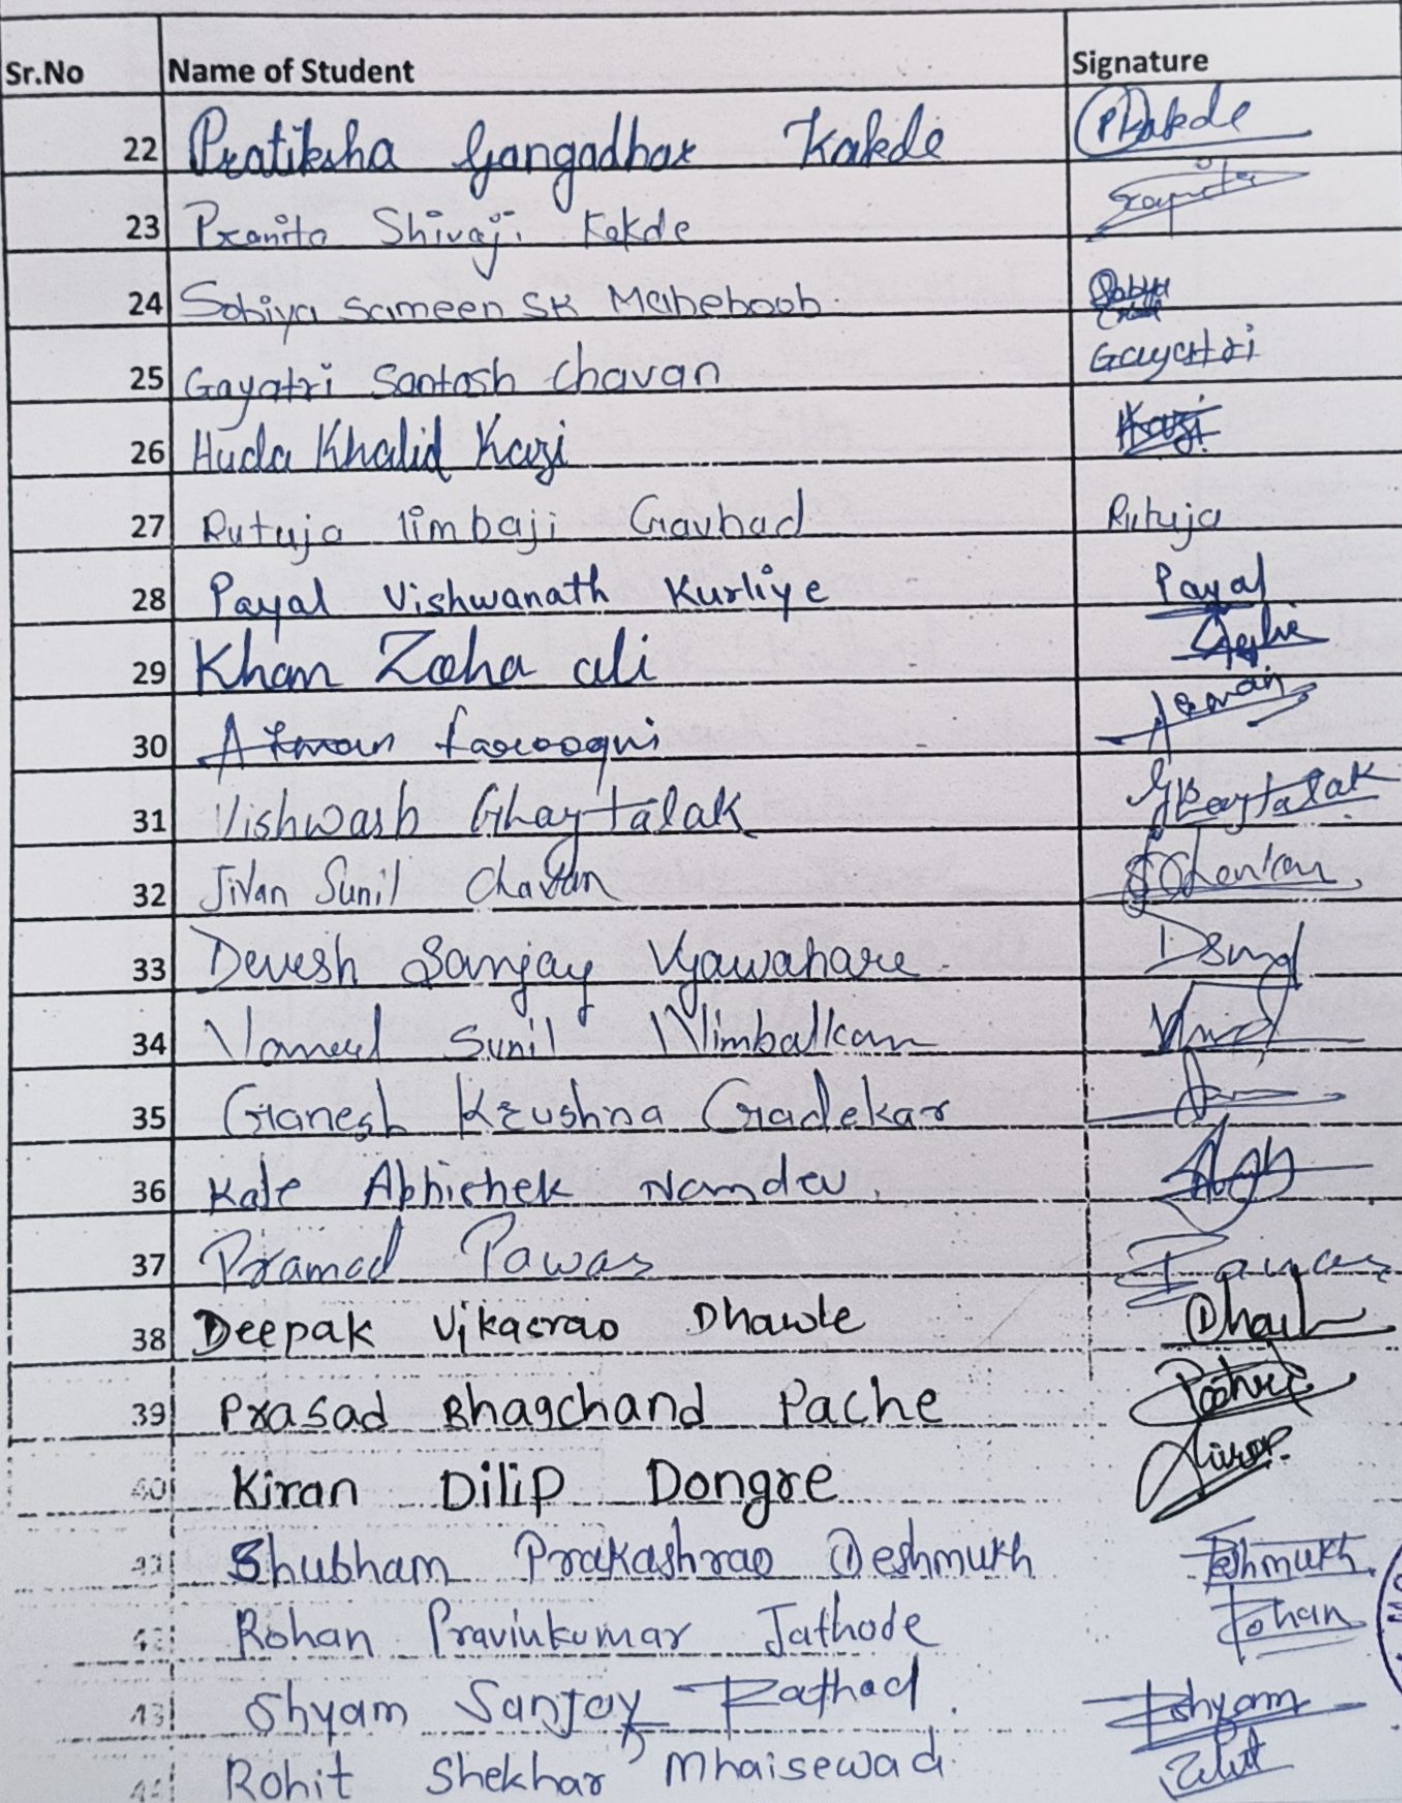 Sr.No Name of Student Signature
22 Pratiksha Gangadhar Kakde PKakde
23 Pranita Shivaji Kakde
24 Sobiya Sameen SK Maheboob
25 Gayatri Santosh Chavan Gayatri
26 Huda Khalid Kazi Kazi
27 Rutuja limbaji Gavhad Rutuja
28 Payal Vishwanath Kurliye Payal
29 Khan Zoha ali
30 farooqui
31 Vishwash Ghaytalak Ghaytalak
32 Jivan Sunil Chavan
33 Devesh Sanjay Vyawahare
34 Sunil Nimbalkar
35 Ganesh Krushna Gadekar
36 Kale Abhishek Namdev
37 Pramod Pawar Pawar
38 Deepak Vikasrao Dhawle
39 Prasad Bhagchand Pache
40 Kiran Dilip Dongre
41 Shubham Prakashrao Deshmukh Deshmukh
42 Rohan Pravinkumar Jathode Rohan
43 Shyam Sanjay Rathod Shyam
44 Rohit Shekhar Mhaisewad